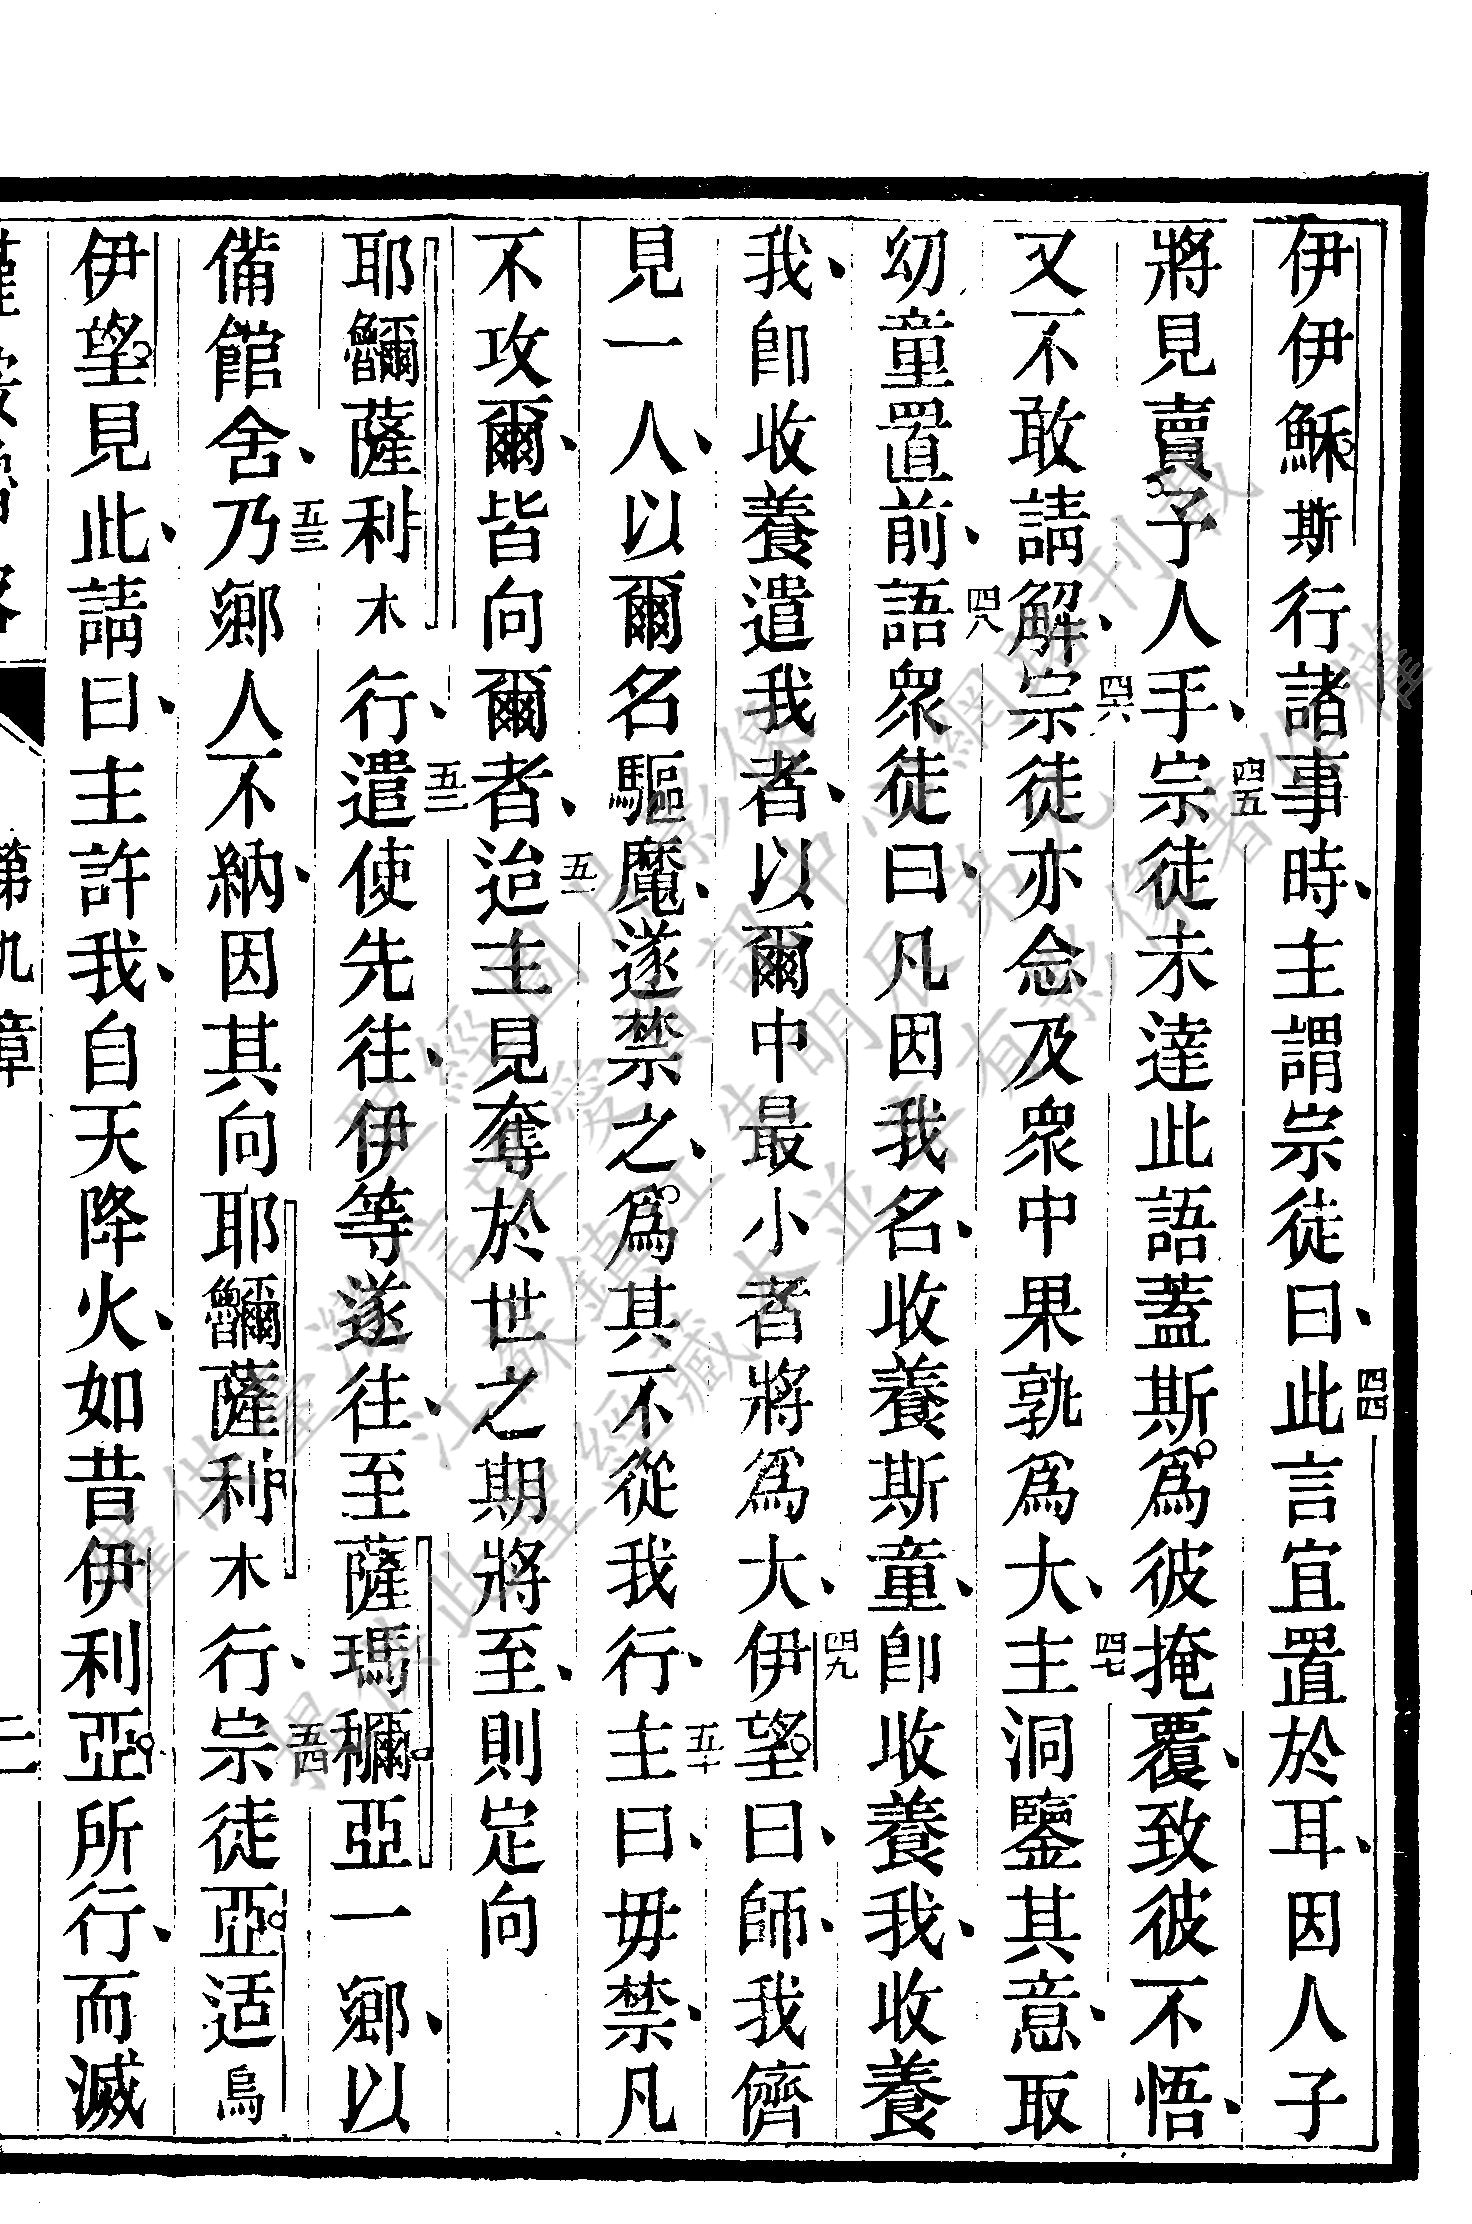 伊伊穌斯行諸事時、主謂宗徒曰、四四此言宜置於耳、因人子
將見賣予人手、四五宗徒未達此語、蓋斯爲彼掩覆、致彼不悟、
又不敢請解、四六宗徒亦念及衆中果孰爲大、四七主洞鑒其意、取
幼童置前、四八語衆徒曰、凡因我名、收養斯童、卽收養我、收養
我、卽收養遣我者、以爾中最小者將爲大、四九伊望曰、師、我儕
見一人、以爾名驅魔、遂禁之、爲其不從我行、五十主曰、毋禁、凡
不攻爾、皆向爾者、五一迨主見奪於世之期將至、則定向
耶𩼧薩利木行、五二遣使先往、伊等遂往、至薩瑪穪亞一鄉、以
備館舍、五三乃鄉人不納、因其向耶𩼧薩利木行、五四宗徒亞适烏
伊望見此、請曰、主許我、自天降火、如昔伊利亞所行、而滅
第九章 二